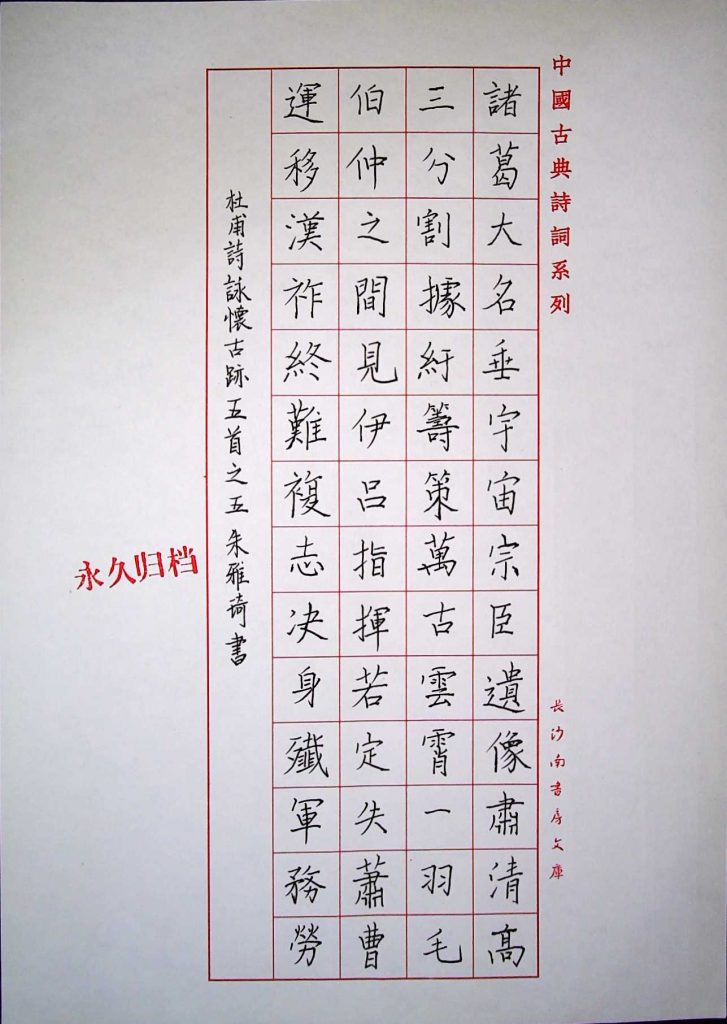 中國古典詩詞系列
長沙南書房文庫
諸葛大名垂宇宙宗臣遺像肅清高
三分割據紆籌策萬古雲霄一羽毛
伯仲之間見伊呂指揮若定失蕭曹
運移漢祚終難複志决身殲軍務勞
杜甫詩詠懷古跡五首之五 朱雅琦書
永久归档